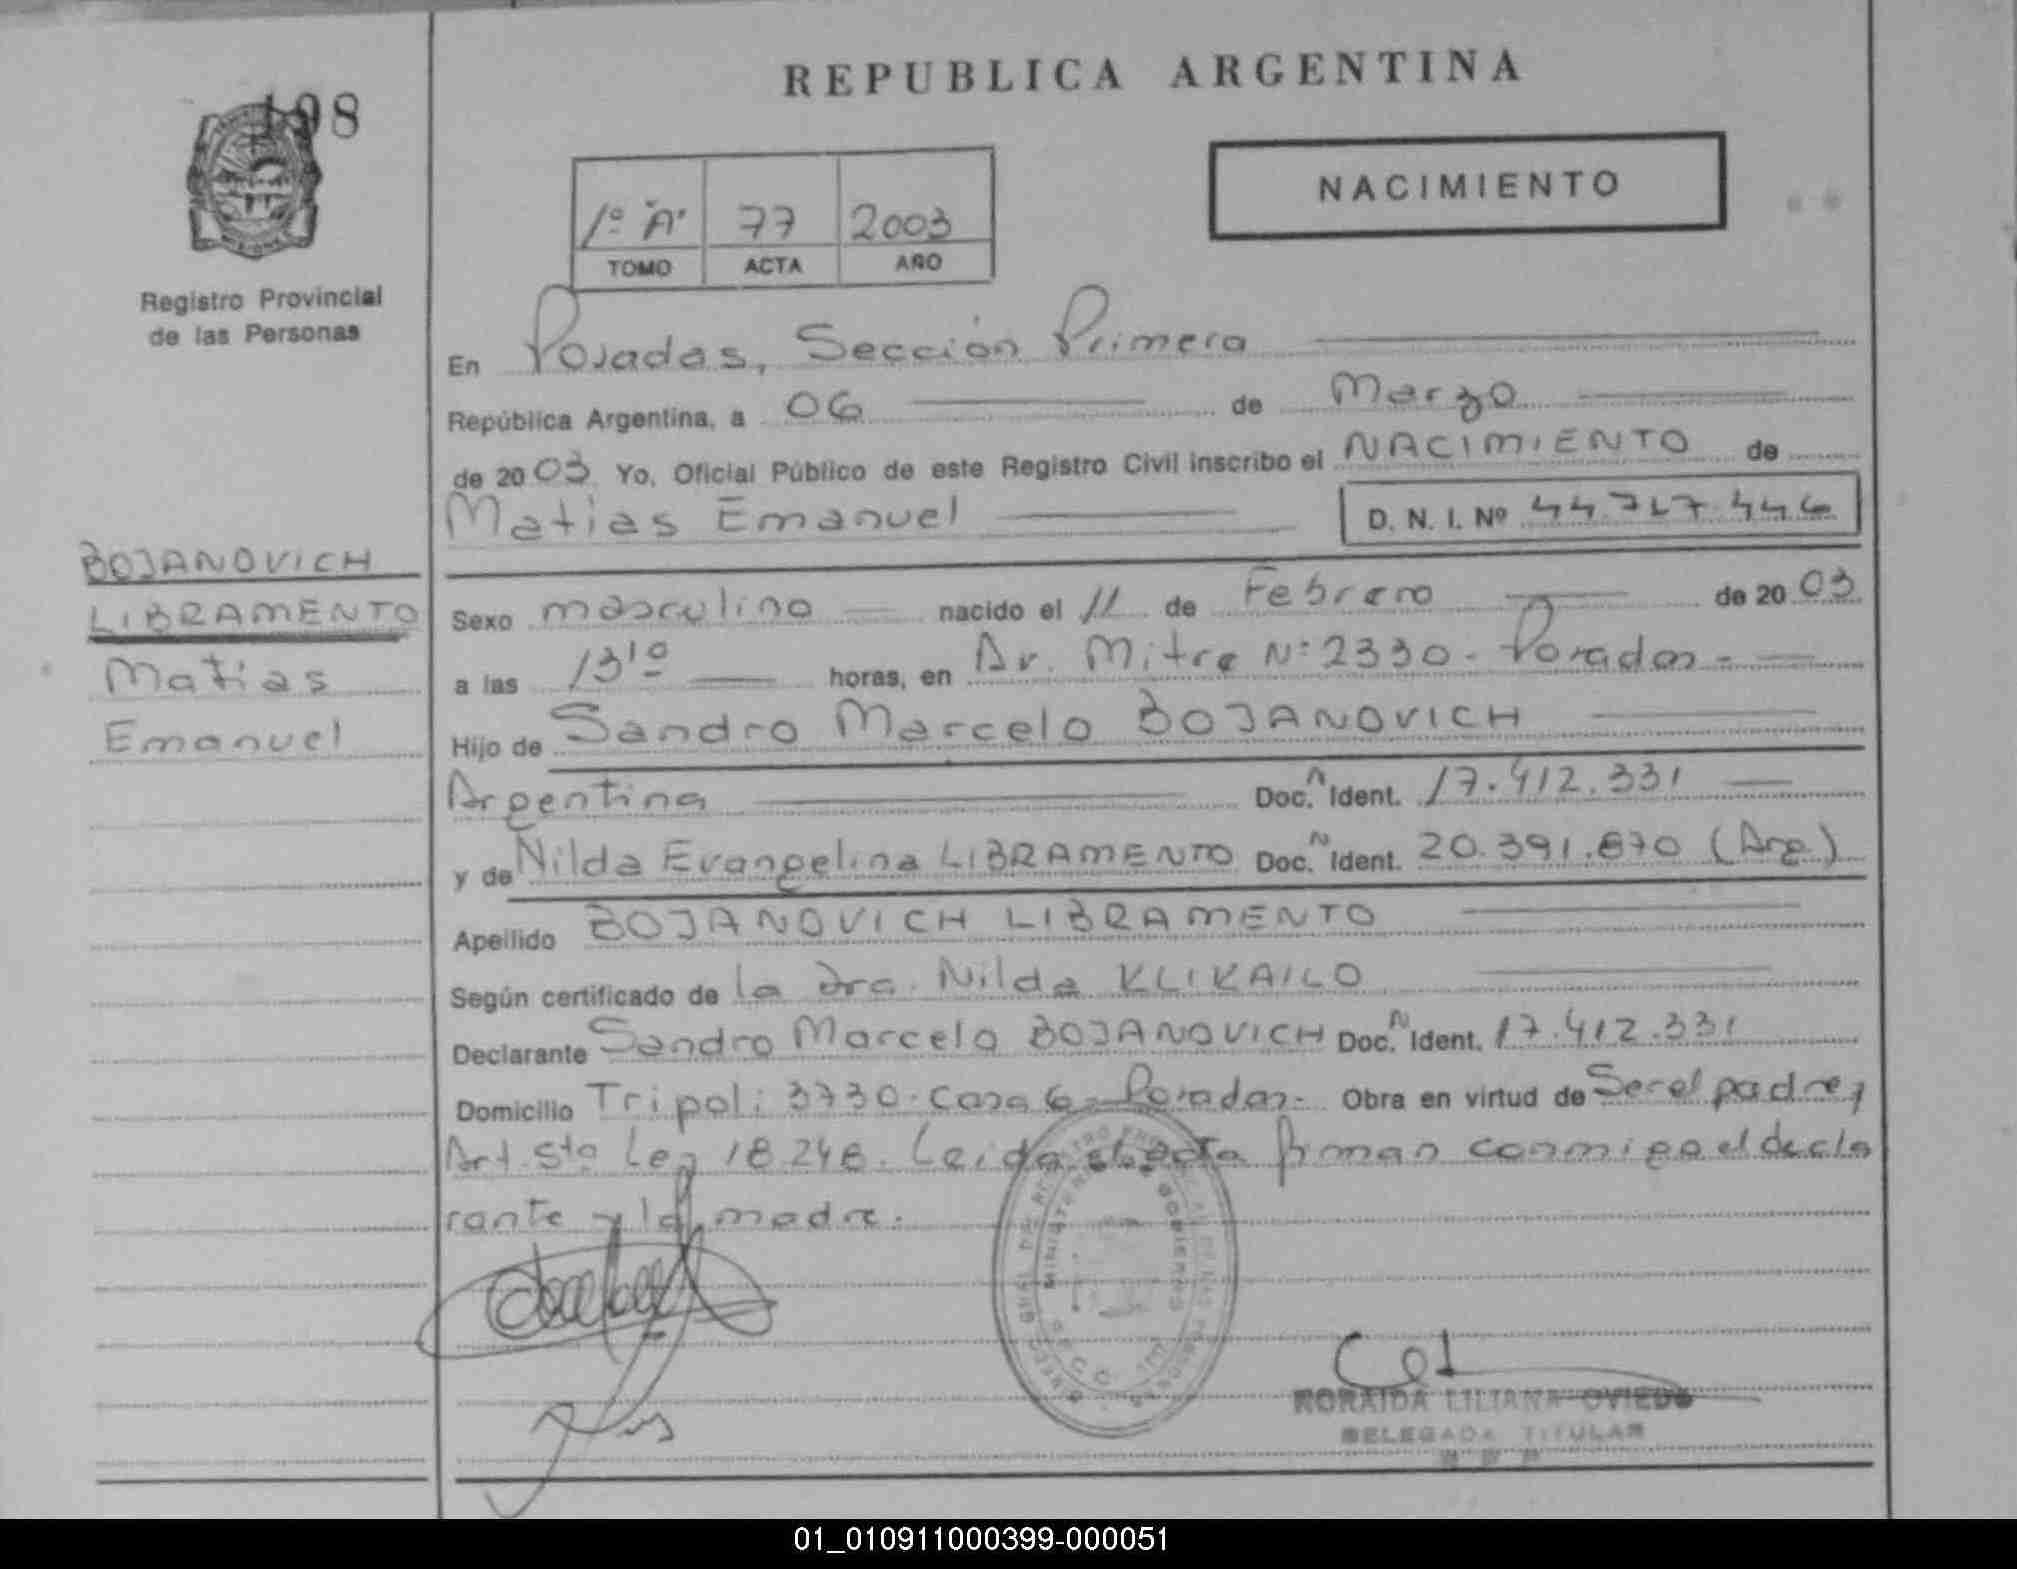 198
REPUBLICA ARGENTINA
NACIMIENTO
1º "A" 77 2003
TOMO ACTA AÑO
Registro Provincial
de las Personas
En Posadas, Sección Primera
República Argentina, a 06 de Marzo
de 2003 Yo, Oficial Público de este Registro Civil inscribo el NACIMIENTO de
Matias Emanuel D. N. I. Nº 44.747.446
BOJANOVICH
LIBRAMENTO
Matias
Emanuel
Sexo masculino nacido el 11 de Febrero de 2003
a las 13 10 horas, en Av. Mitre Nº 2330 - Posadas -
Hijo de Sandro Marcelo BOJANOVICH
Argentina Doc. N Ident. 17.412.331
y de Nilda Evangelina LIBRAMENTO Doc. N Ident. 20.391.870 (Arg.)
Apellido BOJANOVICH LIBRAMENTO
Según certificado de la Dra. Nilda KLIKAILO
Declarante Sandro Marcelo BOJANOVICH Doc. N Ident. 17.412.331
Domicilio Tripoli 3730 - Casa 6 - Posadas - Obra en virtud de Ser el padre y
Art. 5to Ley 18.248. Leida el acta firman conmigo el decla
rante y la madre.
MINISTERIO DE GOBIERNO
NORAIDA LILIANA OVIEDO
DELEGADA TITULAR
01_010911000399-000051